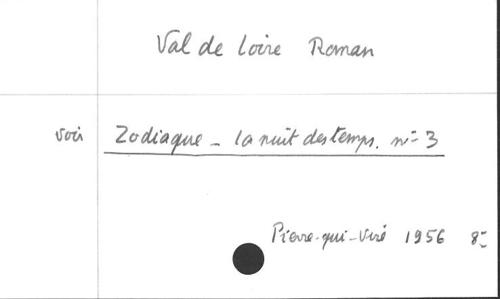 Val de Loire Roman
voir Zodiaque - la nuit des temps. n° 3
Pierre-qui-Viré 1956 8°